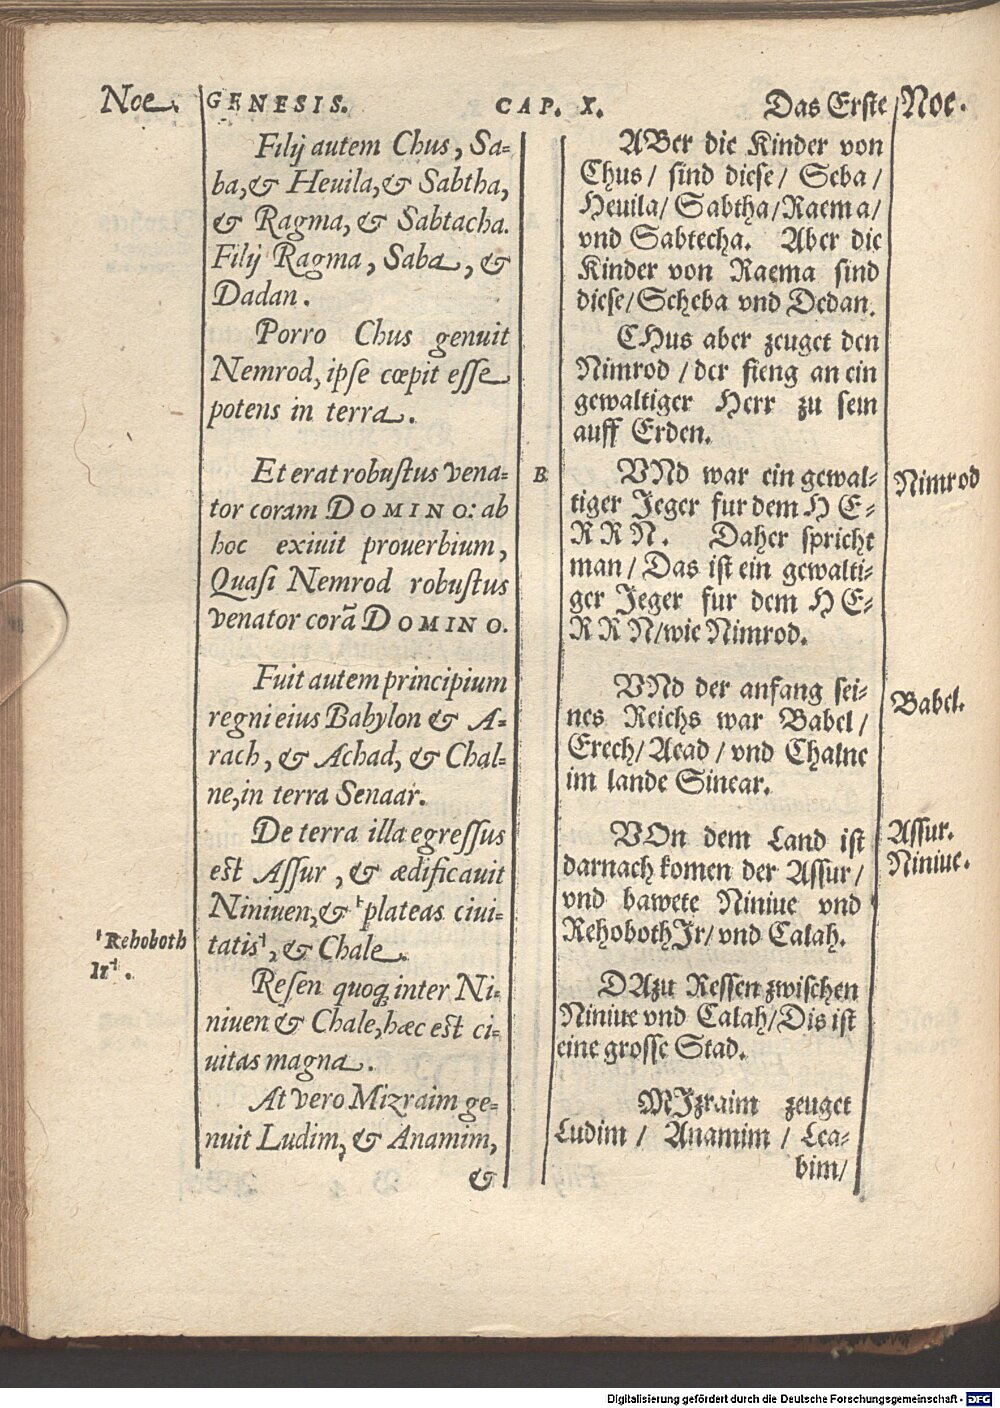 Noe.
GENESIS. CAP. X. Das Erste Noe.
Filij autem Chus, Sa-
ba, & Heuila, & Sabtha,
& Ragma, & Sabtacha.
Filij Ragma, Saba, &
Dadan.
Porro Chus genuit
Nemrod, ipse cœpit esse
potens in terra.
Et erat robustus vena-
tor coram DOMINO: ab
hoc exiuit prouerbium,
Quasi Nemrod robustus
venator corã DOMINO.
Fuit autem principium
regni eius Babylon & A-
rach, & Achad, & Chal-
ne, in terra Senaar.
De terra illa egressus
est Assur, & ædificauit
Niniuen, & ¹plateas ciui-
tatis⸣, & Chale.
¹Rehoboth
Ir⸣.
Resen quoq; inter Ni-
niuen & Chale, hæc est ci-
uitas magna.
At vero Mizraim ge-
nuit Ludim, & Anamim,
&
B
ABer die Kinder von
Chus / sind diese / Seba /
Heuila / Sabtha / Raema /
vnd Sabtecha. Aber die
Kinder von Raema sind
diese / Scheba vnd Dedan.
CHus aber zeuget den
Nimrod / der fieng an ein
gewaltiger Herr zu sein
auff Erden.
VNd war ein gewal-
tiger Jeger fur dem HE-
RRN. Daher spricht
man / Das ist ein gewalti-
ger Jeger fur dem HE-
RRN / wie Nimrod.
VNd der anfang sei-
nes Reichs war Babel /
Erech / Acad / vnd Chalne
im lande Sinear.
VOn dem Land ist
darnach komen der Assur /
vnd bawete Niniue vnd
Rehoboth Jr / vnd Calah.
DAzu Ressen zwischen
Niniue vnd Calah / Dis ist
eine grosse Stad.
MJzraim zeuget
Ludim / Anamim / Lea-
bim /
Nimrod
Babel.
Assur.
Niniue.
Digitalisierung gefördert durch die Deutsche Forschungsgemeinschaft - DFG